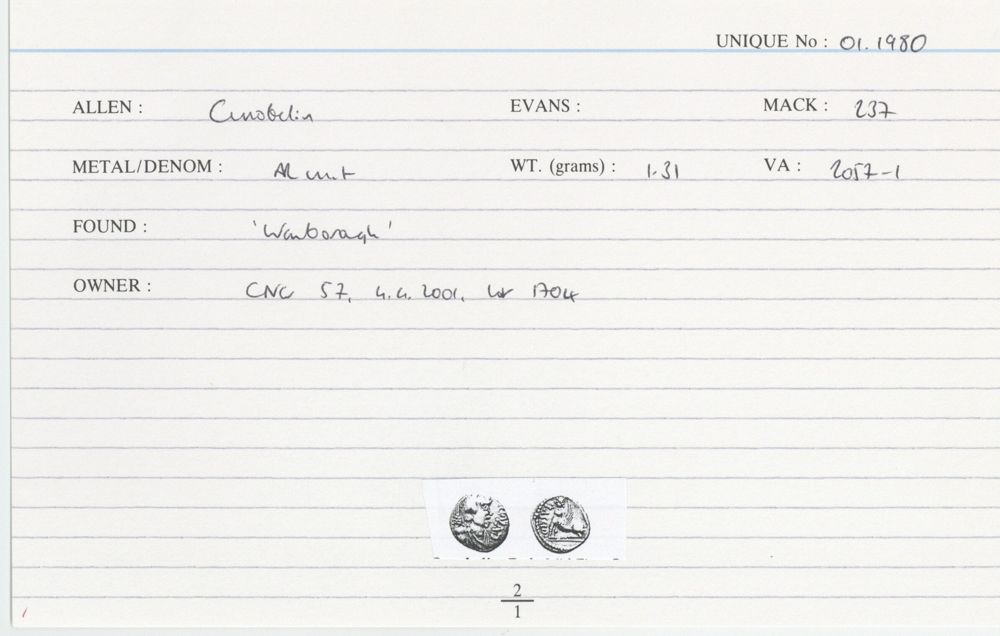 UNIQUE No : 01.1980
ALLEN : Cunobelin EVANS : MACK : 237
METAL/DENOM : AR unit WT. (grams) : 1.31 VA : 2057-1
FOUND : 'Wanborough'
OWNER : CNG 57, 4.4.2001, lot 1704
2
1